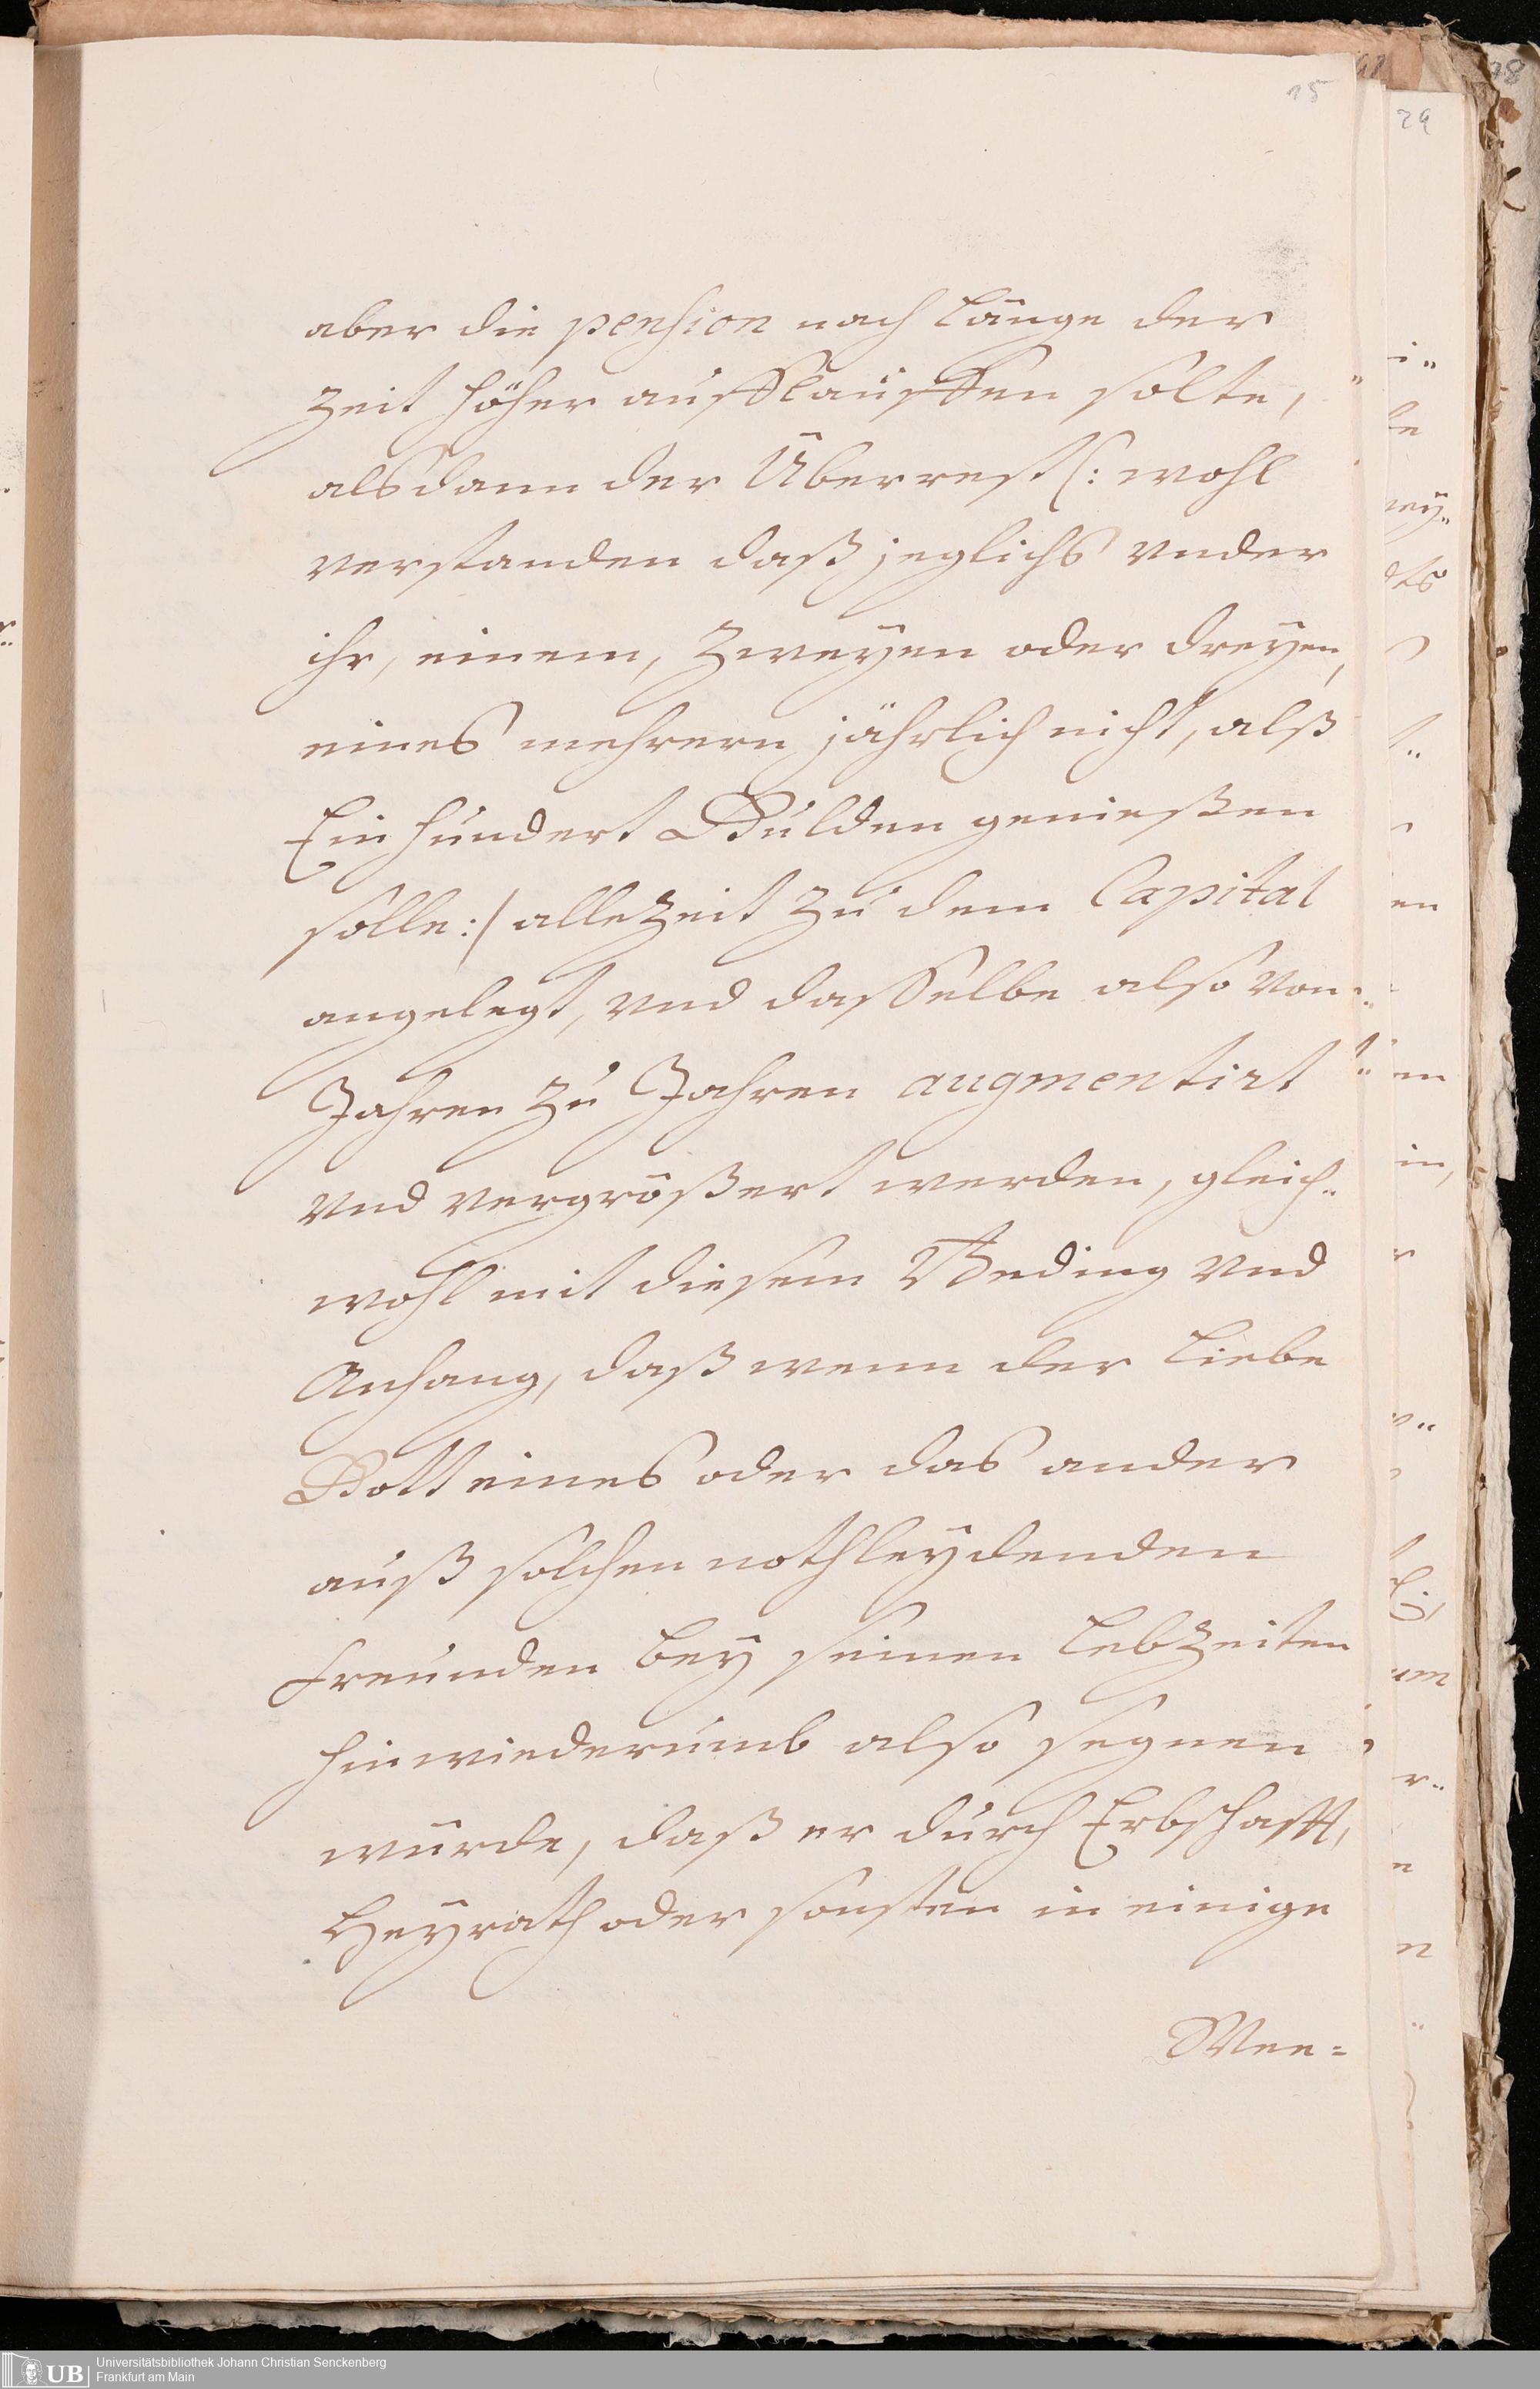 15
29
aber die pension nach länge der
Zeit höher aufflauffen solte,
alsdann der Überrest /: wohl
verstanden daß jeglichs vnder
ihr, einem, Zweÿen oder dreÿen,
eines mehrern jährlich nicht, alß
Ein hundert Gulden genießen
solle :/ alleZeit Zu dem Capital
angelegt, vnd dasselbe also von
Jahren Zu Jahren augmentirt
vnd vergrößert werden, gleich„
wohl mit diesem Beding vnd
Anhang, daß wenn der Liebe
Gott eines oder das ander
auß solchen nothleÿdenden
freunden beÿ seinen LebZeiten
hinwiederumb also segnen
würde, daß er durch Erbschafft,
Heÿrath oder sonsten in einige
Wee=
UB
Universitätsbibliothek Johann Christian Senckenberg
Frankfurt am Main